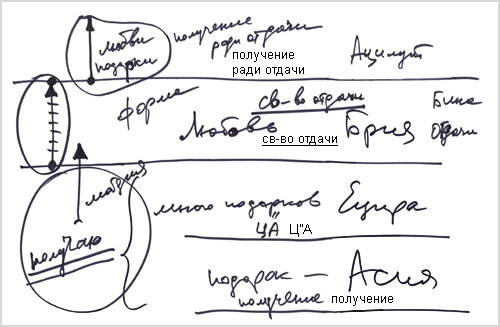 любви
подарки
получение
ради отдачи
получение
ради отдачи
Ацилут
форма
св-во отдачи
Любовь
св-во отдачи
Брия
Бина
отдачи
много подарков
Ецира
ЦА
Ц"А
получаю
подарок — Асия
получение
получение